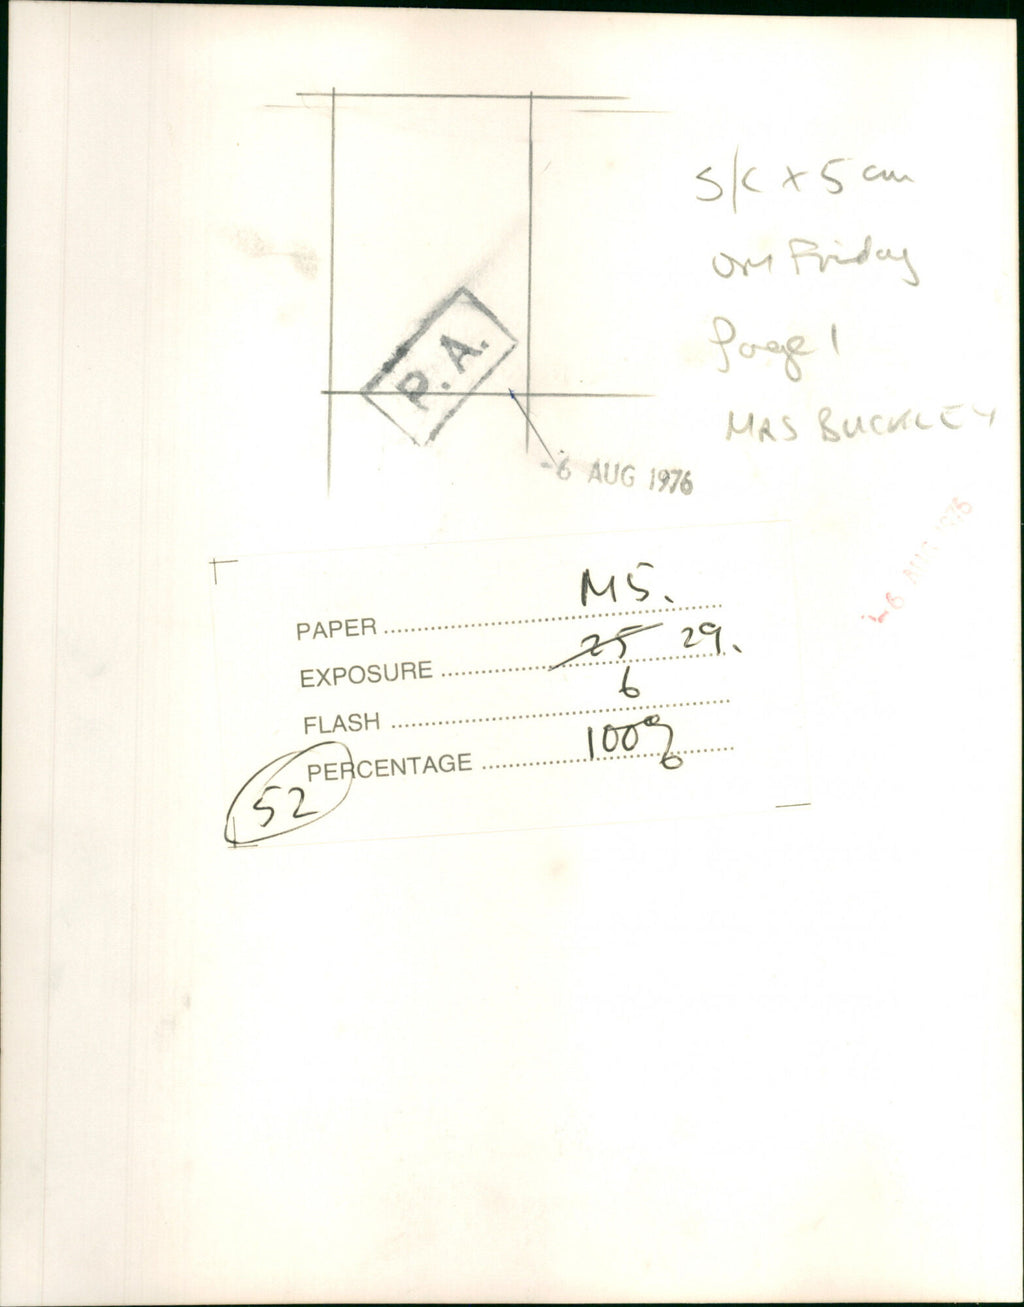 S/C x 5 cm
on Friday
page 1
MRS BUCKLEY
P.A.
-6 AUG 1976
-6 AUG 1976
PAPER M5.
EXPOSURE 25 29.
FLASH 6
PERCENTAGE 100%
52